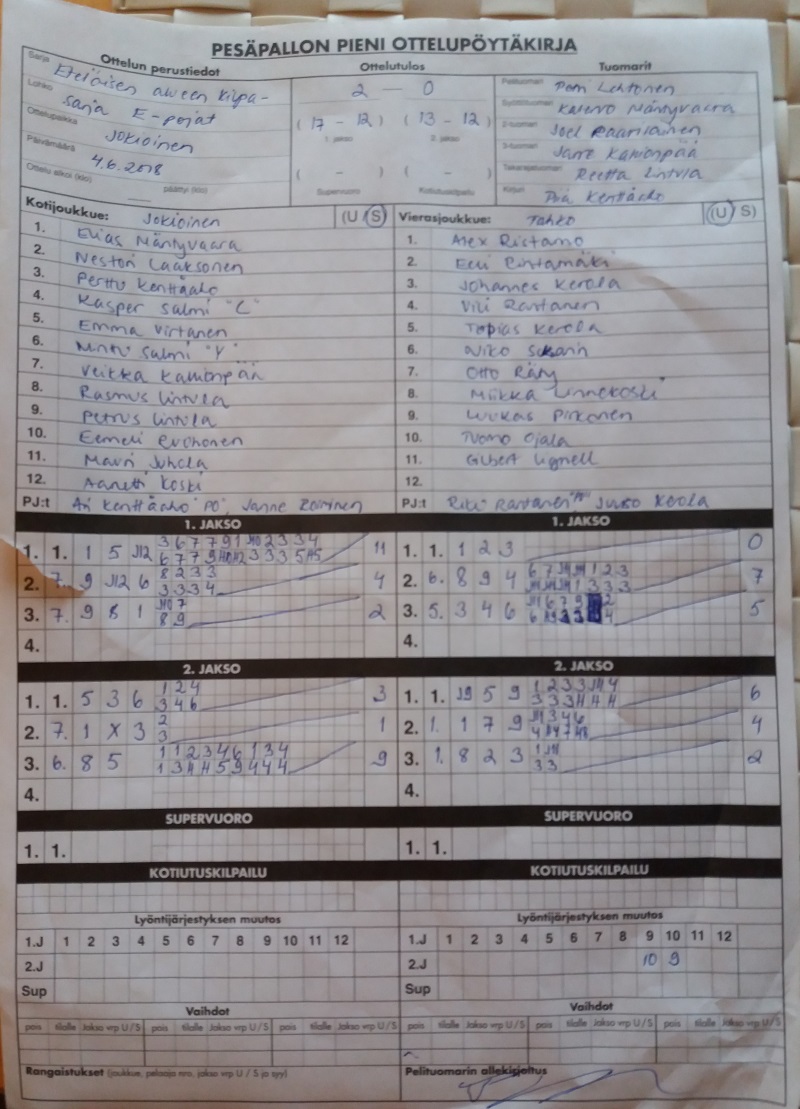 PESÄPALLON PIENI OTTELUPÖYTÄKIRJA
Ottelun perustiedot
Sarja Eteläisen alueen kilpa-
Lohko sarja E-pojat
Ottelupaikka Jokioinen
Päivämäärä 4.6.2018
Ottelu alkoi (klo) päättyi (klo)
Ottelutulos
2 — 0
(17 - 12) (13 - 12)
1. jakso 2. jakso
( - ) ( - )
Supervuoro Kotiutuskilpailu
Tuomarit
Pelituomari Lehtonen
Syöttötuomari Kalervo Mäntyvaara
2-tuomari Joel
3-tuomari Janne Kamonpää
Takarajatuomari Reetta Lintula
Kirjuri Piia Kenttäaho
Kotijoukkue: Jokioinen (U S)
1. Elias Mäntyvaara
2. Nestori Laaksonen
3. Perttu Kenttäaho
4. Kasper Salmi "C"
5. Emma Virtanen
6. Minttu Salmi "V"
7. Veikka Kamonpää
8. Rasmus Lintula
9. Petrus Lintula
10. Eemeli
11. Mauri Juhola
12. Aanetti Koski
PJ:t Ari Kenttäaho "PO", Janne Roininen
Vierasjoukkue: Tahko (U S)
1. Alex Ristamo
2. Eeli Rintamäki
3. Johannes Kerola
4. Vili Rantanen
5. Topias Kerola
6. Niko
7. Otto Räty
8. Miikka Linnekoski
9. Luukas Pirkonen
10. Tuomo Ojala
11. Gilbert Lignell
12.
PJ:t Riku Rantanen "A" Jusso Kerola
1. JAKSO
1. 1. 1 5 J12
3 6 7 7 9 1 J10 2 3 3 4
11
2. 7. 9 J12 6
8 2 3 3
3 3 3 4
4
3. 7. 9 8 1
J10 7
8 9
2
4.
1. JAKSO
1. 1. 1 2 3
0
2. 6. 8 9 4
7
3. 5. 3 4 6
5
4.
2. JAKSO
1. 1. 5 3 6
1 2 4
3 4 6
3
2. 7. 1 X 3
2
3
1
3. 6. 8 5
1 1 2 3 4 6 1 3 4
1 3 4 4 5 9 4 4 4
9
4.
2. JAKSO
1. 1. J9 5 9
6
2. 1. 1 7 9
4
3. 1. 8 2 3
1 J11
3 3
2
4.
SUPERVUORO
1. 1.
SUPERVUORO
1. 1.
KOTIUTUSKILPAILU
KOTIUTUSKILPAILU
Lyöntijärjestyksen muutos
1.J 1 2 3 4 5 6 7 8 9 10 11 12
2.J
Sup
Lyöntijärjestyksen muutos
1.J 1 2 3 4 5 6 7 8 9 10 11 12
2.J 10 9
Sup
Vaihdot
pois tilalle Jakso vrp U / S pois tilalle Jakso vrp U / S pois tilalle Jakso vrp U / S
Vaihdot
pois tilalle Jakso vrp U / S pois tilalle Jakso vrp U / S pois tilalle Jakso vrp U / S
Rangaistukset (joukkue, pelaaja nro, jakso vrp U / S ja syy)
Pelituomarin allekirjoitus